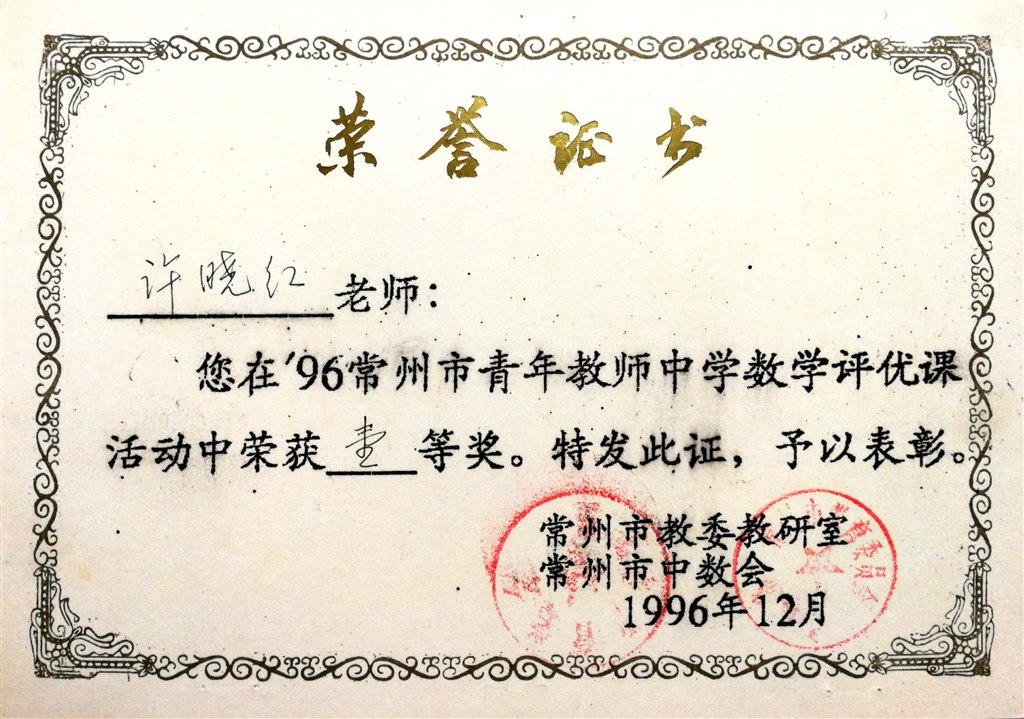 荣誉证书
许晓红老师：
您在'96常州市青年教师中学数学评优课
活动中荣获壹等奖。特发此证，予以表彰。
常州市教委教研室
常州市中数会
1996年12月